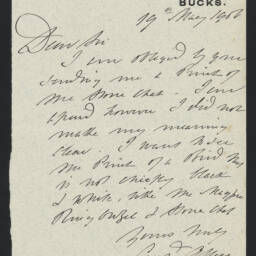 BUCKS.
19th May 1906
Dear Sir
I am obliged by your
sending me a Print of
the Stone Chat. I am
afraid however I did not
make my meaning
clear. I want to see
the Print of a Bird that
is not chiefly black
& white, like the Magpie
Ring Ouzel & Stone Chat
Yours truly